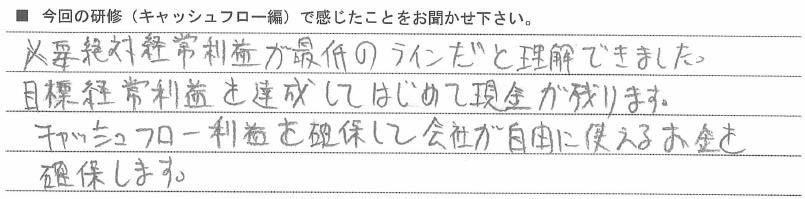 ■ 今回の研修（キャッシュフロー編）で感じたことをお聞かせ下さい。
必要絶対経常利益が最低のラインだと理解できました。
目標経常利益を達成してはじめて現金が残ります。
キャッシュフロー利益を確保して会社が自由に使えるお金を
確保します。